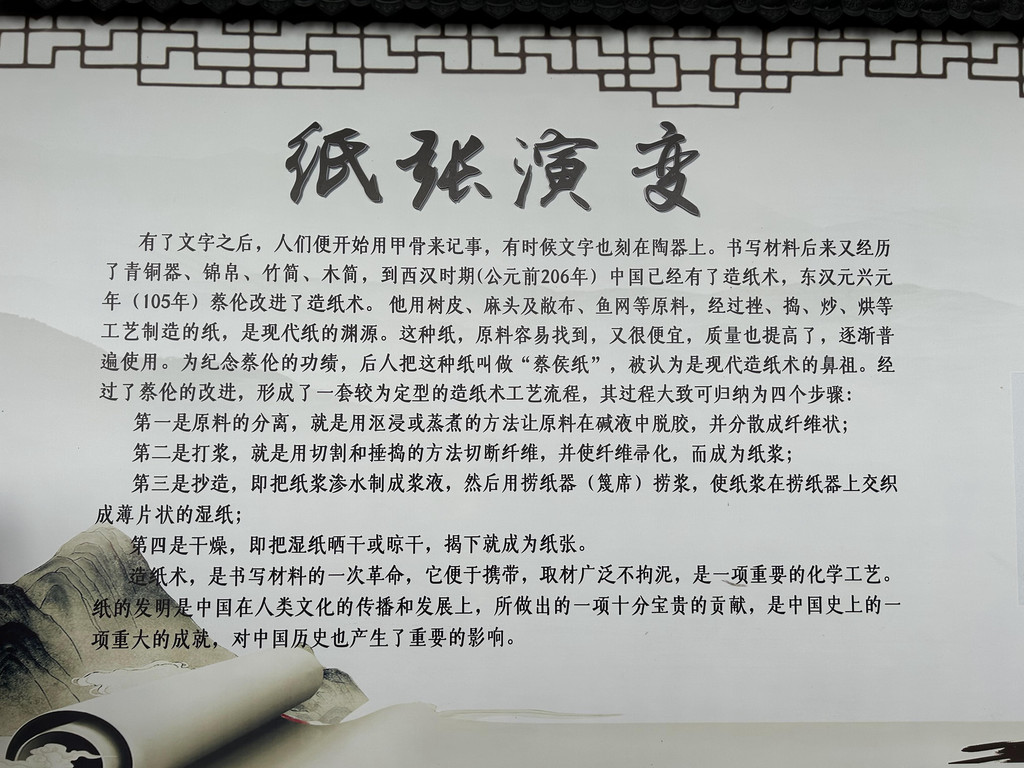 纸张演变
有了文字之后，人们便开始用甲骨来记事，有时候文字也刻在陶器上。书写材料后来又经历
了青铜器、锦帛、竹简、木简，到西汉时期(公元前206年）中国已经有了造纸术，东汉元兴元
年（105年）蔡伦改进了造纸术。他用树皮、麻头及敝布、鱼网等原料，经过挫、捣、炒、烘等
工艺制造的纸，是现代纸的渊源。这种纸，原料容易找到，又很便宜，质量也提高了，逐渐普
遍使用。为纪念蔡伦的功绩，后人把这种纸叫做“蔡侯纸”，被认为是现代造纸术的鼻祖。经
过了蔡伦的改进，形成了一套较为定型的造纸术工艺流程，其过程大致可归纳为四个步骤：
第一是原料的分离，就是用沤浸或蒸煮的方法让原料在碱液中脱胶，并分散成纤维状；
第二是打浆，就是用切割和捶捣的方法切断纤维，并使纤维帚化，而成为纸浆；
第三是抄造，即把纸浆渗水制成浆液，然后用捞纸器（篾席）捞浆，使纸浆在捞纸器上交织
成薄片状的湿纸；
第四是干燥，即把湿纸晒干或晾干，揭下就成为纸张。
造纸术，是书写材料的一次革命，它便于携带，取材广泛不拘泥，是一项重要的化学工艺。
纸的发明是中国在人类文化的传播和发展上，所做出的一项十分宝贵的贡献，是中国史上的一
项重大的成就，对中国历史也产生了重要的影响。